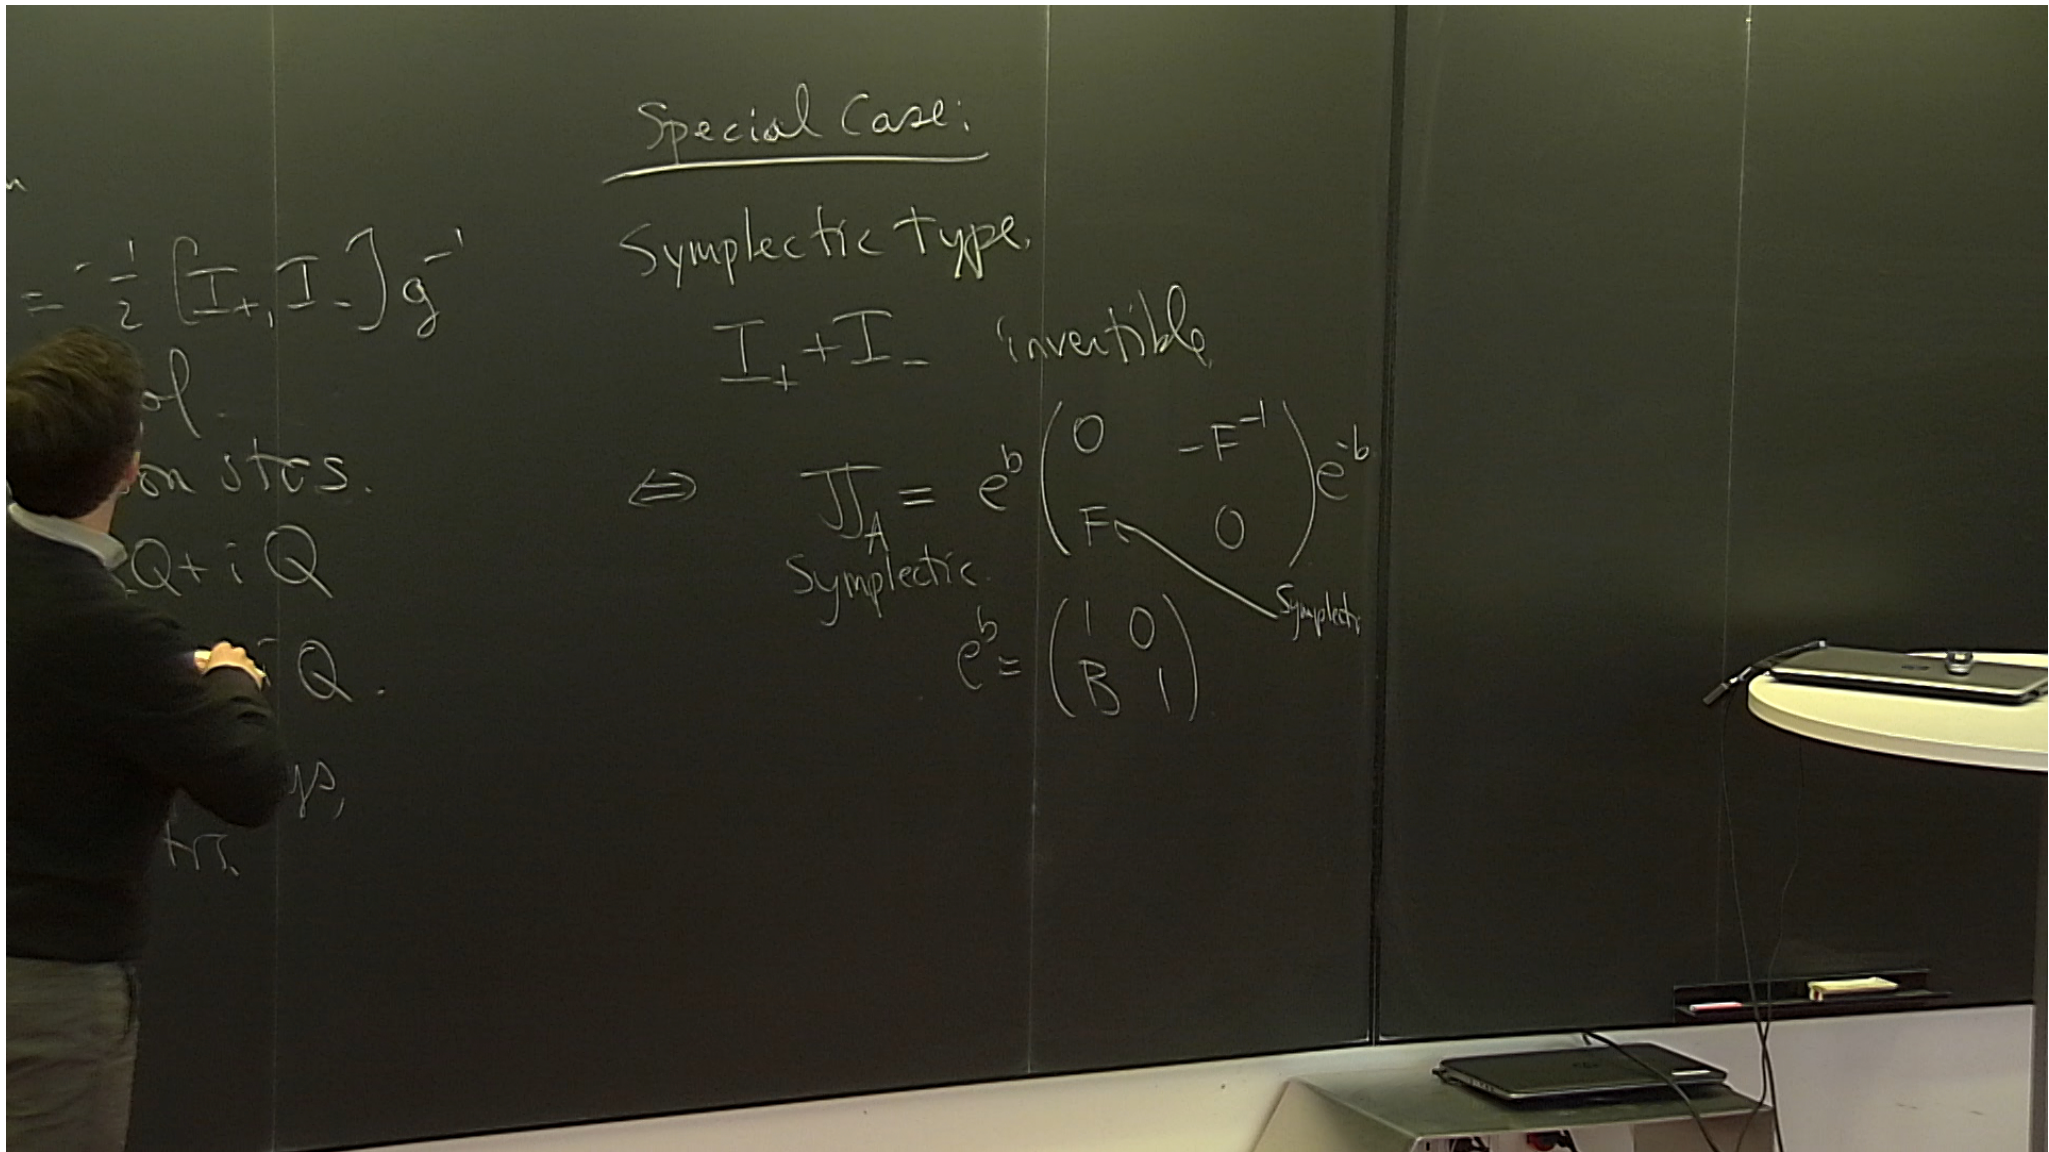 = -½ [I₊, I₋] g⁻¹
stcs.
Q + i Q
Q.
Special Case:
Symplectic type.
I₊ + I₋ invertible.
⇔ 𝕁_A = e^b ( 0 -F⁻¹ ; F 0 ) e^{-b}
Symplectic.
Symplectic
e^b = ( 1 0 ; B 1 )